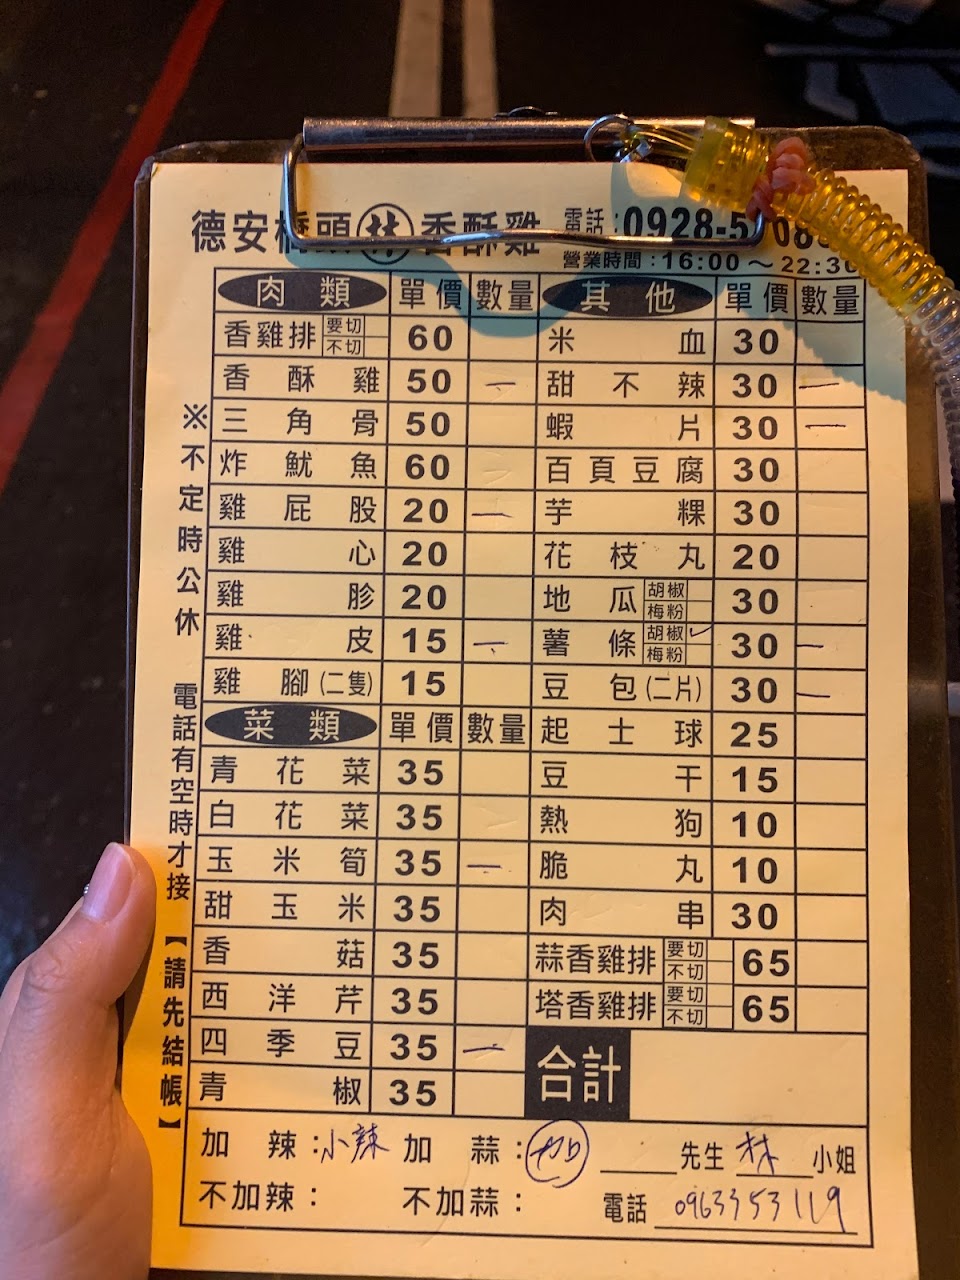 德安橋頭林香酥雞 電話：0928-5
營業時間：16:00～22:30
肉類 單價 數量 其他 單價 數量
香雞排 要切 不切 60 米血 30
香酥雞 50 一 甜不辣 30 一
三角骨 50 蝦片 30 一
炸魷魚 60 百頁豆腐 30
雞屁股 20 一 芋粿 30
雞心 20 花枝丸 20
雞胗 20 地瓜 胡椒 梅粉 30
雞皮 15 一 薯條 胡椒 ✓ 梅粉 30 一
雞腳(二隻) 15 豆包(二片) 30 一
菜類 單價 數量 起士球 25
青花菜 35 豆干 15
白花菜 35 熱狗 10
玉米筍 35 一 脆丸 10
甜玉米 35 肉串 30
香菇 35 蒜香雞排 要切 不切 65
西洋芹 35 塔香雞排 要切 不切 65
四季豆 35 一 合計
青椒 35
加辣：小辣 加蒜：加 ____先生 林 小姐
不加辣： 不加蒜： 電話 0963353119
※不定時公休 電話有空時才接 【請先結帳】